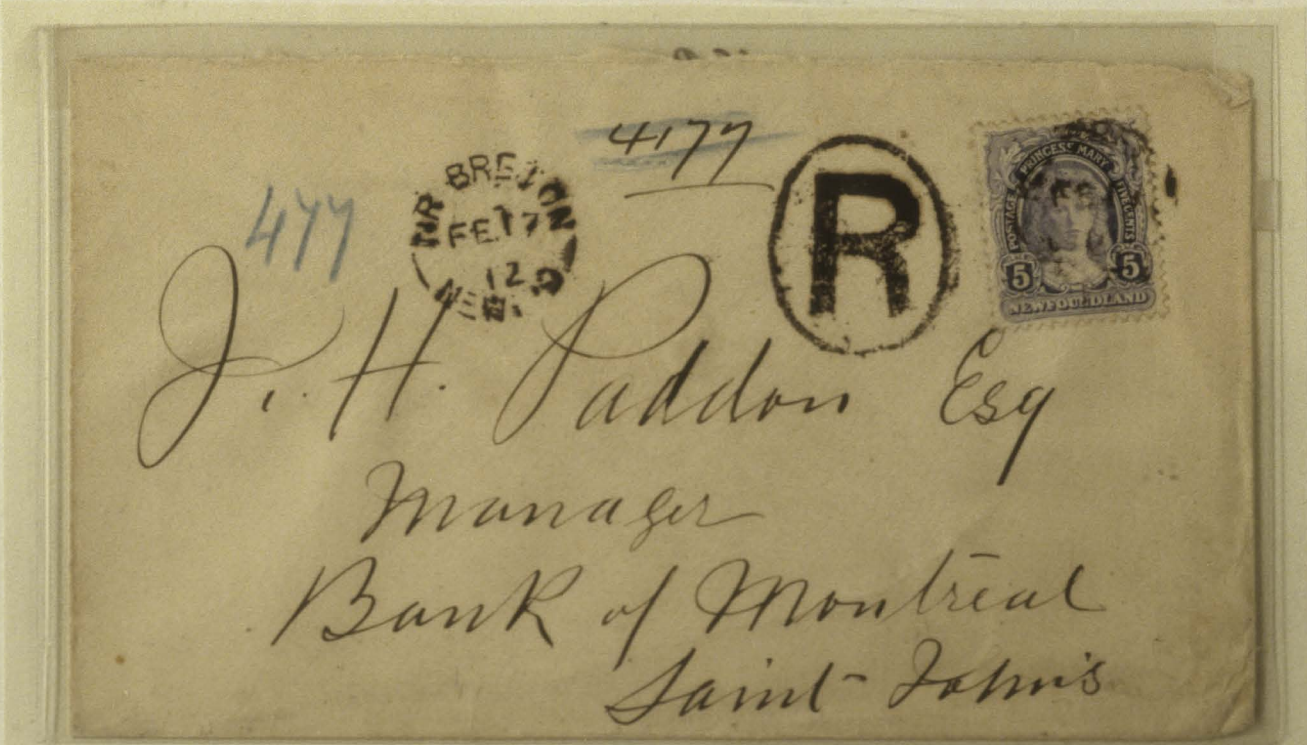 4177
477
NR BRETON
FE 17
12
NEWF'D
R
PRINCESS MARY
POSTAGE
FIVE CENTS
5 5
NEWFOUNDLAND
J. H. Paddon Esq
Manager
Bank of Montreal
Saint John's